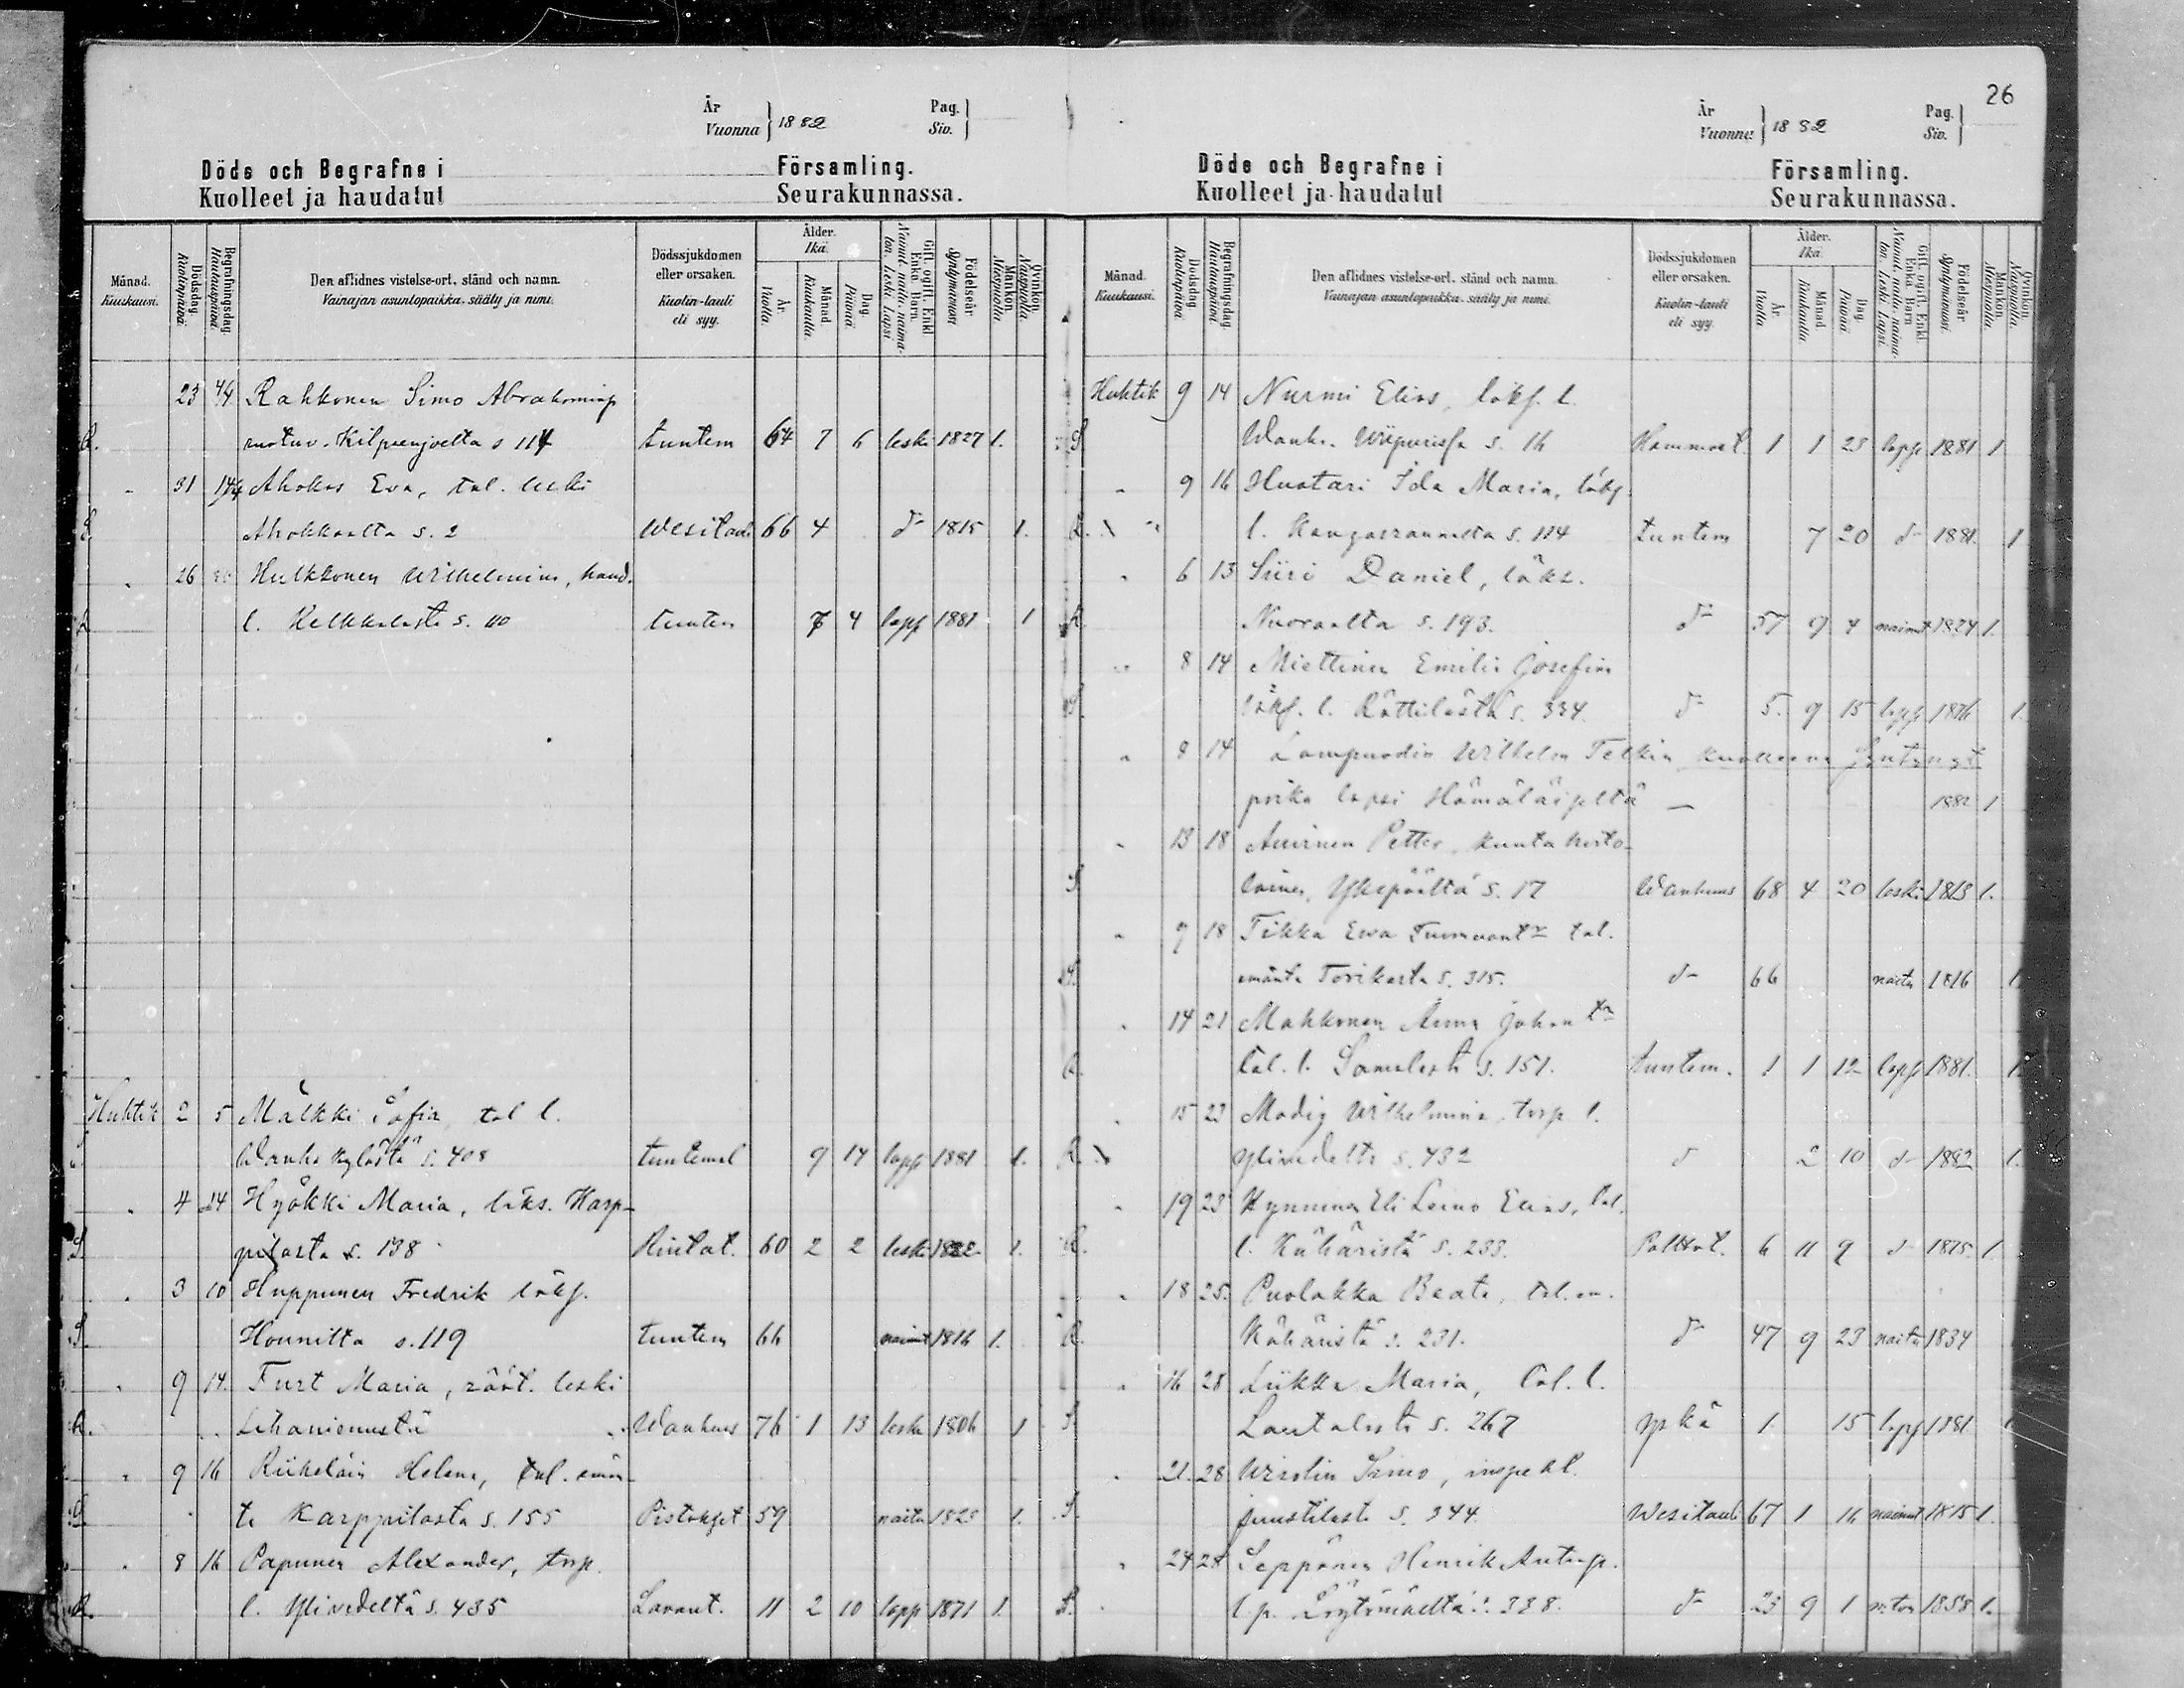 År
Vuonna } 1882
Pag.
Siv. }
Döde och Begrafne i Församling.
Kuolleet ja haudatut Seurakunnassa.
Månad. Kuukausi.
Dödsdag. Kuolinpäivä.
Begrafningsdag. Hautauspäivä.
Den aflidnes vistelse-ort, stånd och namn.
Vainajan asuntopaikka, sääty ja nimi.
Dödssjukdomen eller orsaken.
Kuolin-tauti eli syy.
Ålder. Ikä.
År. Vuotta.
Månad. Kuukautta.
Dag. Päivää.
Gift, ogift, Enkl. Enka, Barn.
Nainut, naitu, naimaton, Leski, Lapsi.
Födelseår. Syntymävuosi.
Mankön. Miespuolia.
Qvinkön. Naispuolia.
23 4/4 Rahkonen Simo Abrahaminp
Kilpeenjoelta s 114 tuntem 64 7 6 leski 1827 1.
31 14/4 Ahokas Eva, tal. leski
Ahokkaalta s. 2 Wesitaudi 66 4 d:o 1815 1.
26 Hulkkonen Wilhelmina,
l. Kelkkalasta s. 110 tuntem 7 4 laps 1881 1
Huhtik 2 5 Mälkki Sofia tal l.
Wanha kylästä s. 408 tuntemat 9 14 laps 1881 1.
4 14 Hyökki Maria, läks. Harp-
pilasta s. 138 Rintat. 60 2 2 leski 1822 1.
3 10 Huppunen Fredrik läks.
Hounitta s. 119 tuntem 66 nainut 1816 1.
9 14. Furt Maria, räät. leski
Lihaniemestä Wanhuus 76 1 13 leski 1806 1
9 16 Riikeläin Helena, tal. emän-
tä Karppilasta s. 155 Pistokset 59 naitu 1823 1.
8 16 Papunen Alexander, torp.
l. Ylivedeltä s. 435 Lavant. 11 2 10 laps 1871 1.
26
År
Vuonna } 1882
Pag.
Siv. }
Döde och Begrafne i Församling.
Kuolleet ja haudatut Seurakunnassa.
Månad. Kuukausi.
Dödsdag. Kuolinpäivä.
Begrafningsdag. Hautauspäivä.
Den aflidnes vistelse-ort, stånd och namn.
Vainajan asuntopaikka, sääty ja nimi.
Dödssjukdomen eller orsaken.
Kuolin-tauti eli syy.
Ålder. Ikä.
År. Vuotta.
Månad. Kuukautta.
Dag. Päivää.
Gift, ogift, Enkl. Enka, Barn
Nainut, naitu, naimaton, Leski, Lapsi.
Födelseår. Syntymävuosi.
Mankön. Miespuolia.
Qvinkön. Naispuolia.
Huhtik 9 14 Nurmi Elias, läks. l.
Wanh. Wiipurissa s. 16 Hammast 1 1 23 laps 1881 1
9 16 Huotari Ida Maria, läks.
l. Kangasrannalta s. 114 tuntem 7 20 d:o 1881. 1
6 13 Siiri Daniel, läks.
Nuoraalta s. 193. d:o 57 9 4 nainut 1824 1.
8 14 Miettinen Emilia Josefin
läks. l. Rättilästä s. 334. d:o 5. 9 15 laps 1876 1.
8 14 Lampuodin Wilhelm Telkin kuolleena syntynyt
poika lapsi Hämäläiseltä — 1882 1
13 18 Auvinen Petter, kunta hoito-
lainen, Ykspäältä s. 17 Wanhuus 68 4 20 leski 1813 1.
9 18 Tikka Ewa tal.
emäntä Torikasta s. 315. d:o 66 naitu 1816 1
14 21 Mahkonen Anna Johan tr
tal. l. Samalasti s. 151. tuntem. 1 1 12 laps 1881. 1.
15 23 Modig Wilhelmina, torp. l.
Ylivedeltä s. 432 d:o 2 10 d:o 1882 1.
19 23 Kynninen Eli Leino Elias, tal.
l. Kähäristä s. 233. Polttot. 6 11 9 d:o 1875. 1.
18 25. Puolakka Beata, tal. em.
Kähäristä s. 231. d:o 47 9 23 naitu 1834
16 28 Liikka Maria, tal. l.
Lautalasti s. 267 yskä 1. 15 laps 1881
21. 28 Simo, inspekt.
Juustilasti s. 344. Wesitauti 67 1 16 nainut 1815 1.
24 28 Seppänen Henrik Antinp.
l. p. s. 338. d:o 23 9 1 n:ton 1858 1.